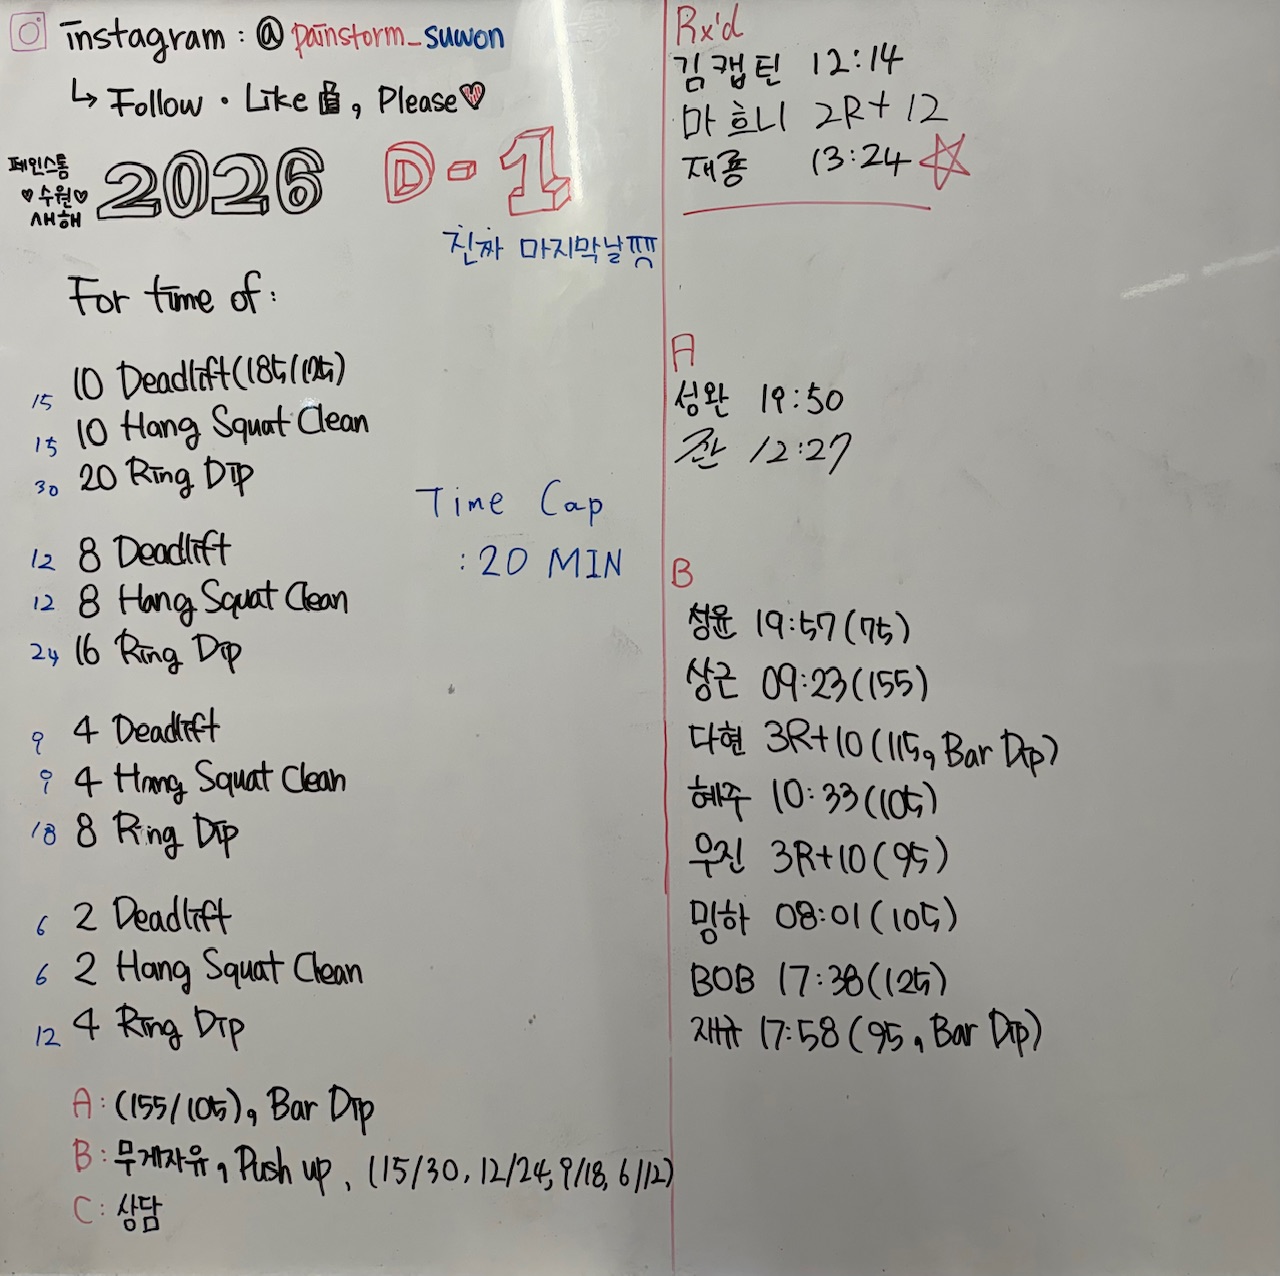 instagram : @ painstorm_suwon
↳ Follow · Like , Please
페인스톰
수원
새해
2026 D-1
진짜 마지막날ㅠㅠ
For time of :
15 10 Deadlift(185/125)
15 10 Hang Squat Clean
30 20 Ring Dip
12 8 Deadlift
12 8 Hang Squat Clean
24 16 Ring Dip
9 4 Deadlift
9 4 Hang Squat Clean
18 8 Ring Dip
6 2 Deadlift
6 2 Hang Squat Clean
12 4 Ring Dip
Time Cap
: 20 MIN
A : (155/105), Bar Dip
B : 무게자유, Push up, (15/30, 12/24, 9/18, 6/12)
C : 상담
Rx'd
김캡틴 12:14
마흐니 2R+12
재룡 13:24
A
성완 19:50
쫜 12:27
B
성윤 19:57(75)
상근 09:23(155)
다현 3R+10(115, Bar Dip)
혜주 10:33(105)
우진 3R+10(95)
밍하 08:01(105)
BOB 17:38(125)
재규 17:58(95, Bar Dip)